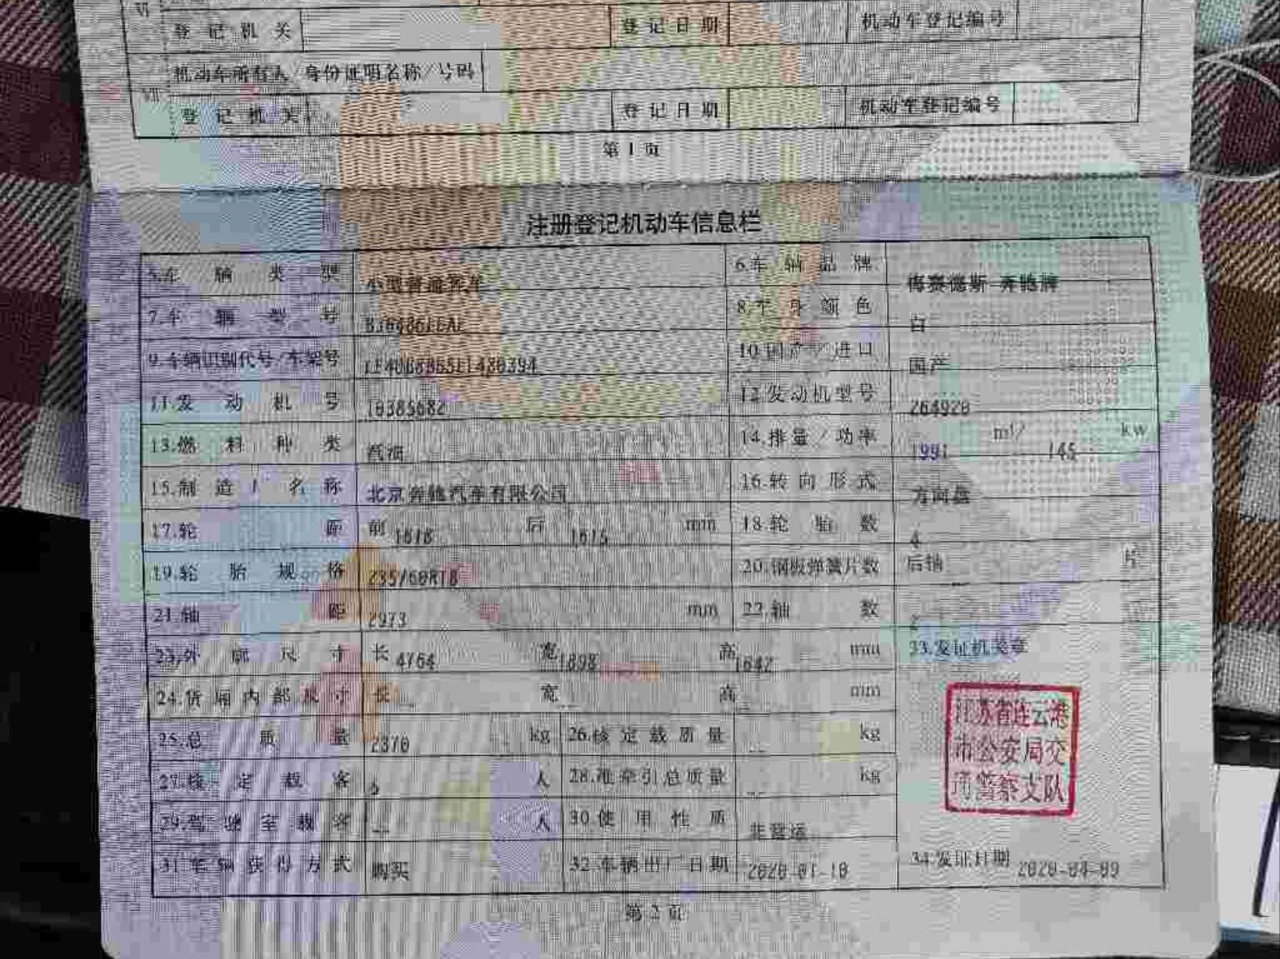 VI
登记机关 登记日期 机动车登记编号
机动车所有人/身份证明名称/号码
VII
登记机关 登记日期 机动车登记编号
第 1 页
注册登记机动车信息栏
5.车辆类型 小型普通客车 6.车辆品牌 梅赛德斯-奔驰牌
7.车辆型号 8.车身颜色 白
9.车辆识别代号/车架号 10.国产/进口 国产
11.发动机号 10385682 12.发动机型号 264920
13.燃料种类 汽油 14.排量/功率 1991 ml/ 145 kw
15.制造厂名称 北京奔驰汽车有限公司 16.转向形式 方向盘
17.轮距 前 1618 后 1615 mm 18.轮胎数 4
19.轮胎规格 235/60R18 20.钢板弹簧片数 后轴 片
21.轴距 2973 mm 22.轴数 2
23.外廓尺寸 长 4764 宽 1898 高 1642 mm 33.发证机关章
24.货厢内部尺寸 长 -- 宽 -- 高 -- mm
江苏省连云港
市公安局交
通警察支队
25.总质量 2370 kg 26.核定载质量 -- kg
27.核定载客 5 人 28.准牵引总质量 -- kg
29.驾驶室载客 -- 人 30.使用性质 非营运
31.车辆获得方式 购买 32.车辆出厂日期 2020-01-10 34.发证日期 2020-04-09
第 2 页